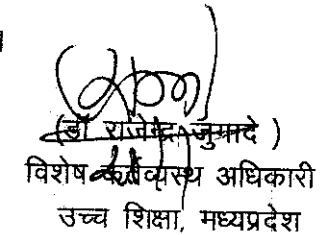 (डॉ राजेन्द्र जुगादे )
विशेष कर्तव्यस्थ अधिकारी
उच्च शिक्षा, मध्यप्रदेश